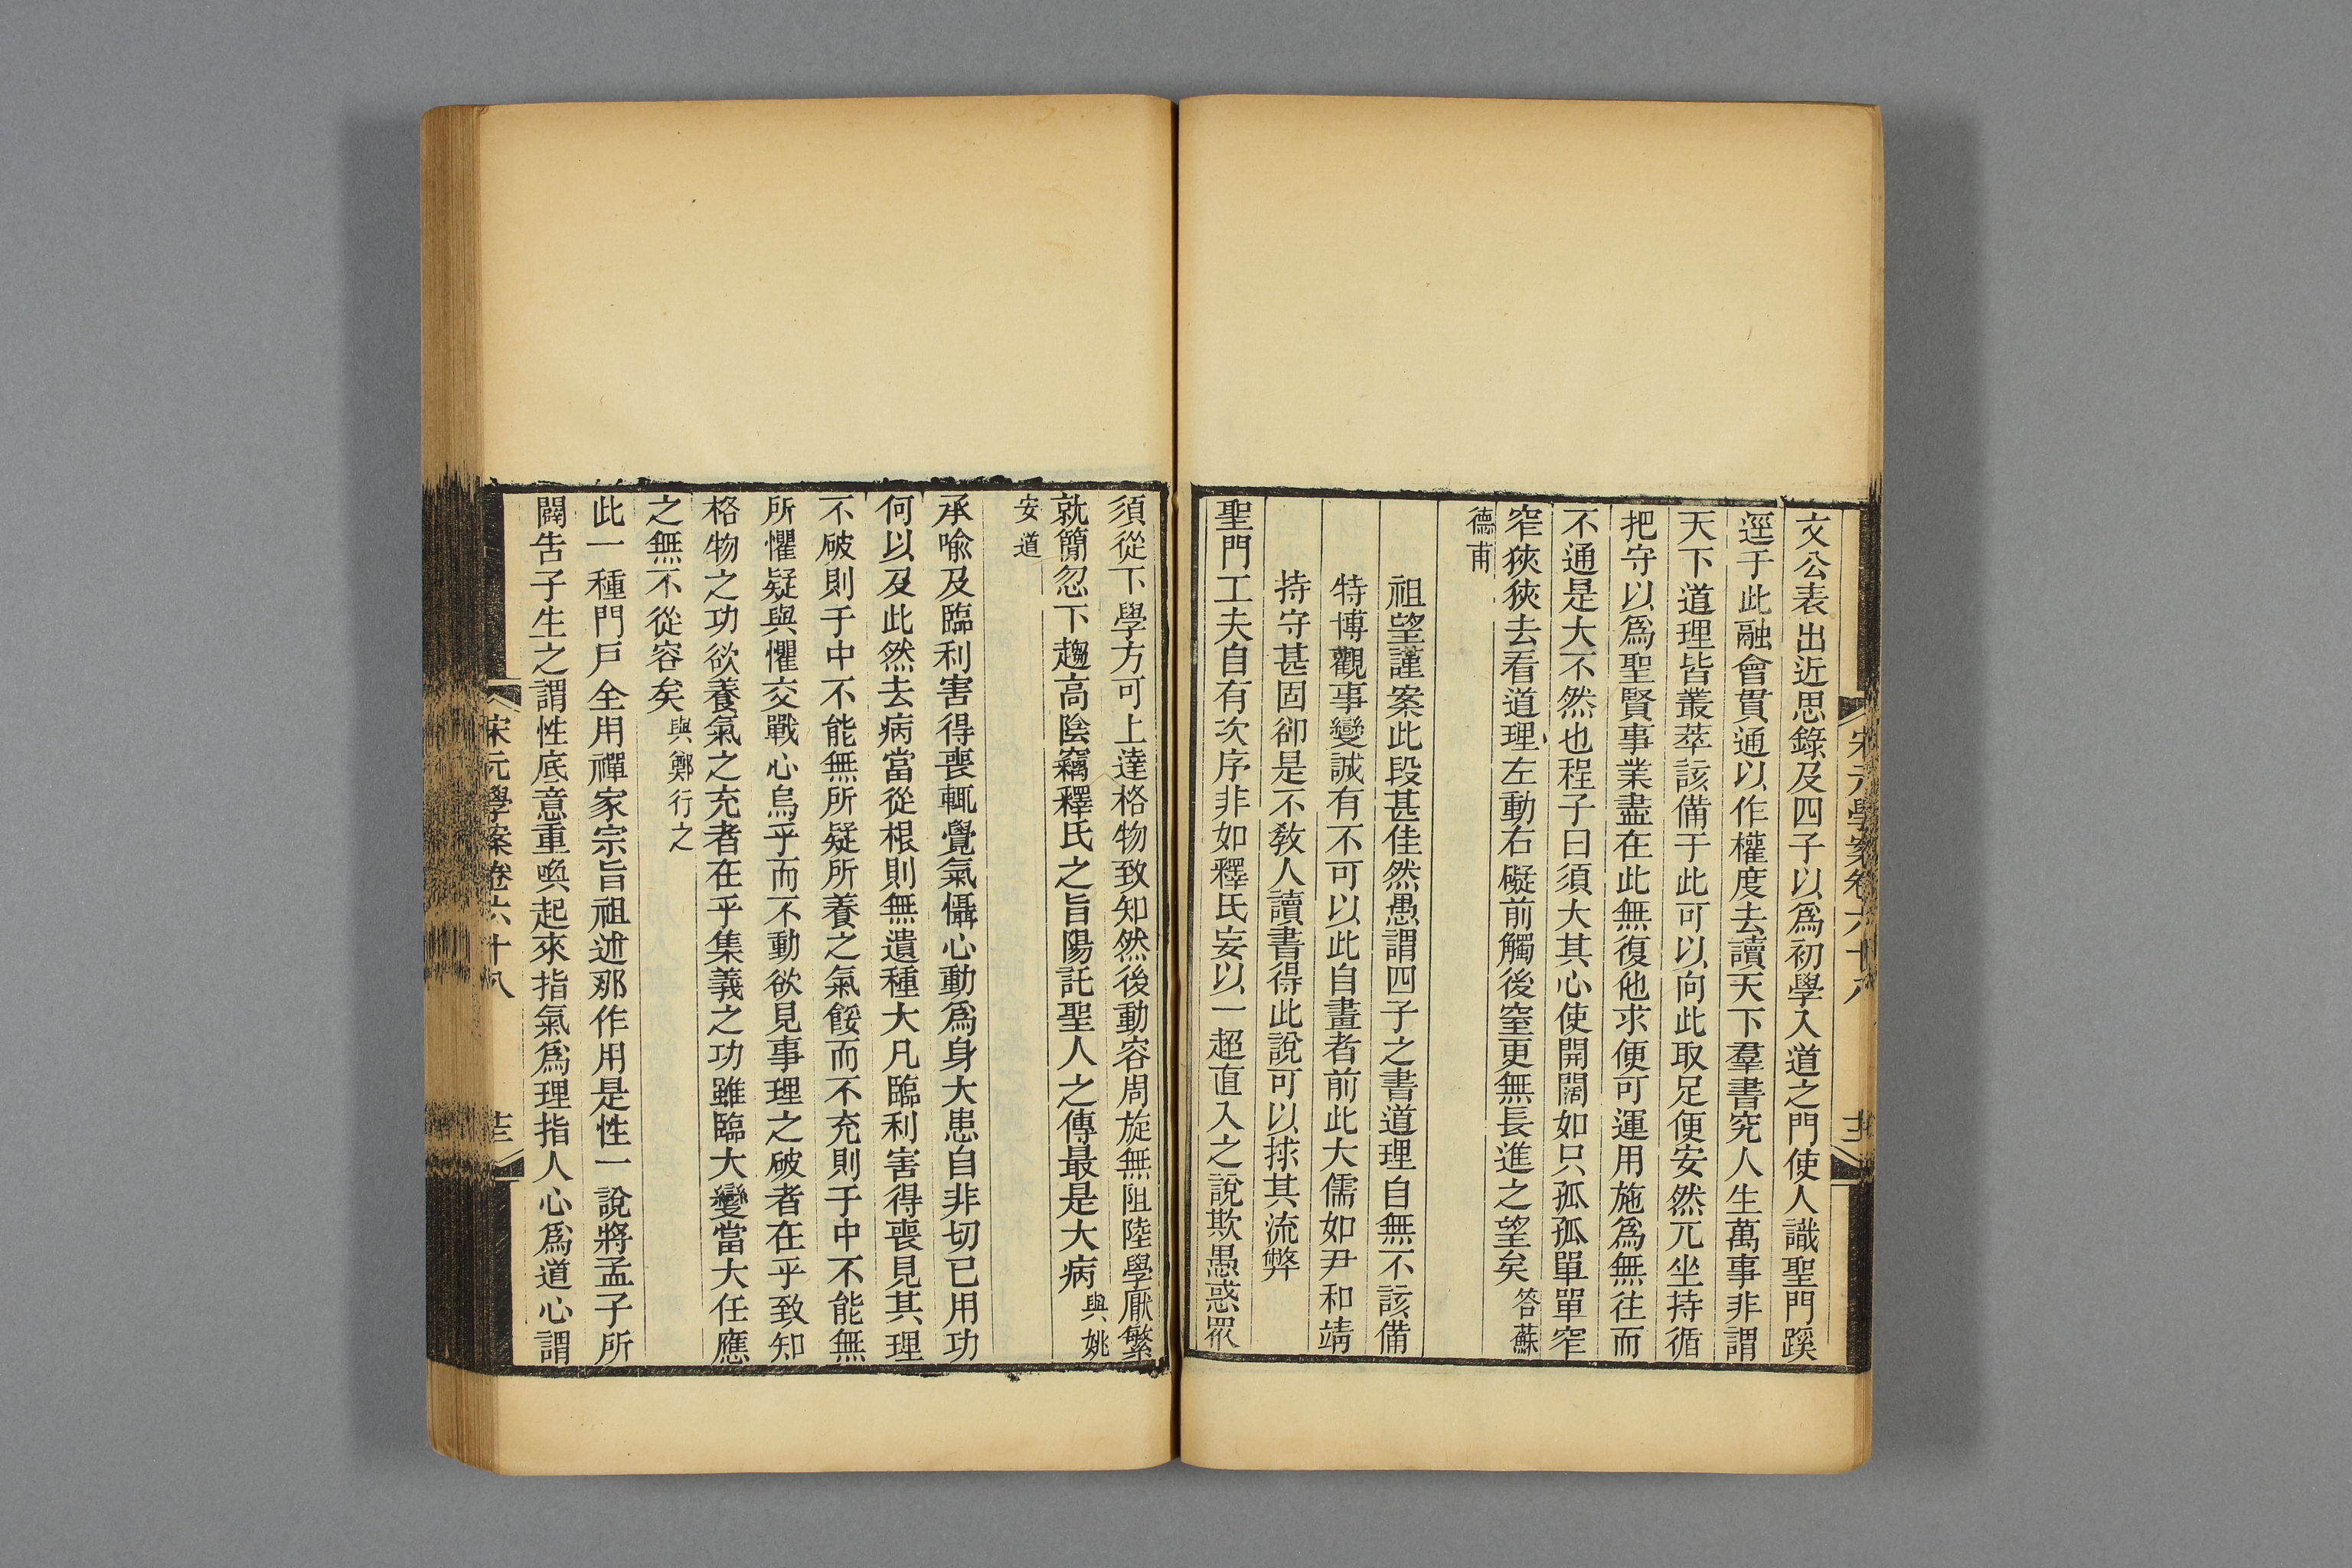 宋元學案卷六十八
文公表出近思錄及四子以爲初學入道之門使人識聖門蹊
逕于此融會貫通以作權度去讀天下羣書究人生萬事非謂
天下道理皆叢萃該備于此可以向此取足便安然兀坐持循
把守以爲聖賢事業盡在此無復他求便可運用施爲無往而
不通是大不然也程子曰須大其心使開闊如只孤孤單單窄
窄狹狹去看道理左動右礙前觸後窒更無長進之望矣答蘇
德甫
祖望謹案此段甚佳然愚謂四子之書道理自無不該備
特博觀事變誠有不可以此自畫者前此大儒如尹和靖
持守甚固卻是不敎人讀書得此說可以捄其流弊
聖門工夫自有次序非如釋氏妄以一超直入之說欺愚惑眾
須從下學方可上達格物致知然後動容周旋無阻陸學厭繁
就簡忽下趨高陰竊釋氏之旨陽託聖人之傳最是大病與姚
安道
承喻及臨利害得喪輒覺氣懾心動爲身大患自非切已用功
何以及此然去病當從根則無遺種大凡臨利害得喪見其理
不破則于中不能無所疑所養之氣餒而不充則于中不能無
所懼疑與懼交戰心烏乎而不動欲見事理之破者在乎致知
格物之功欲養氣之充者在乎集義之功雖臨大變當大任應
之無不從容矣與鄭行之
此一種門戶全用禪家宗旨祖述那作用是性一說將孟子所
闢告子生之謂性底意重喚起來指氣爲理指人心爲道心謂
宋元學案卷六十八